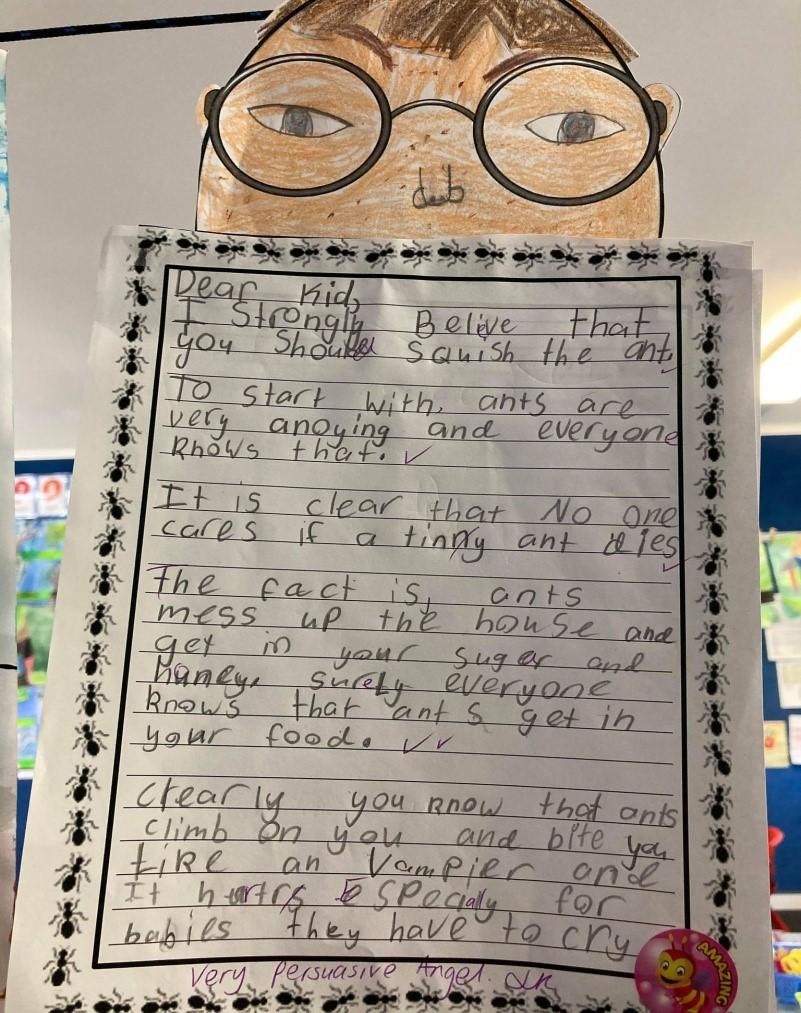 Dear Kid,
I Strongly Belive that
you Should squish the ant,
To start with, ants are
very anoying and everyone
knows that.
It is clear that No one
cares if a tinny ant dies
The fact is, ants
mess up the house and
get in your suger and
honey. surely everyone
knows that ants get in
your food.
Clearly you know that ants
climb on you and bite you
Like an Vampier and
It hurts Especially for
babies they have to cry
Very Persuasive Angel.
AMAZING